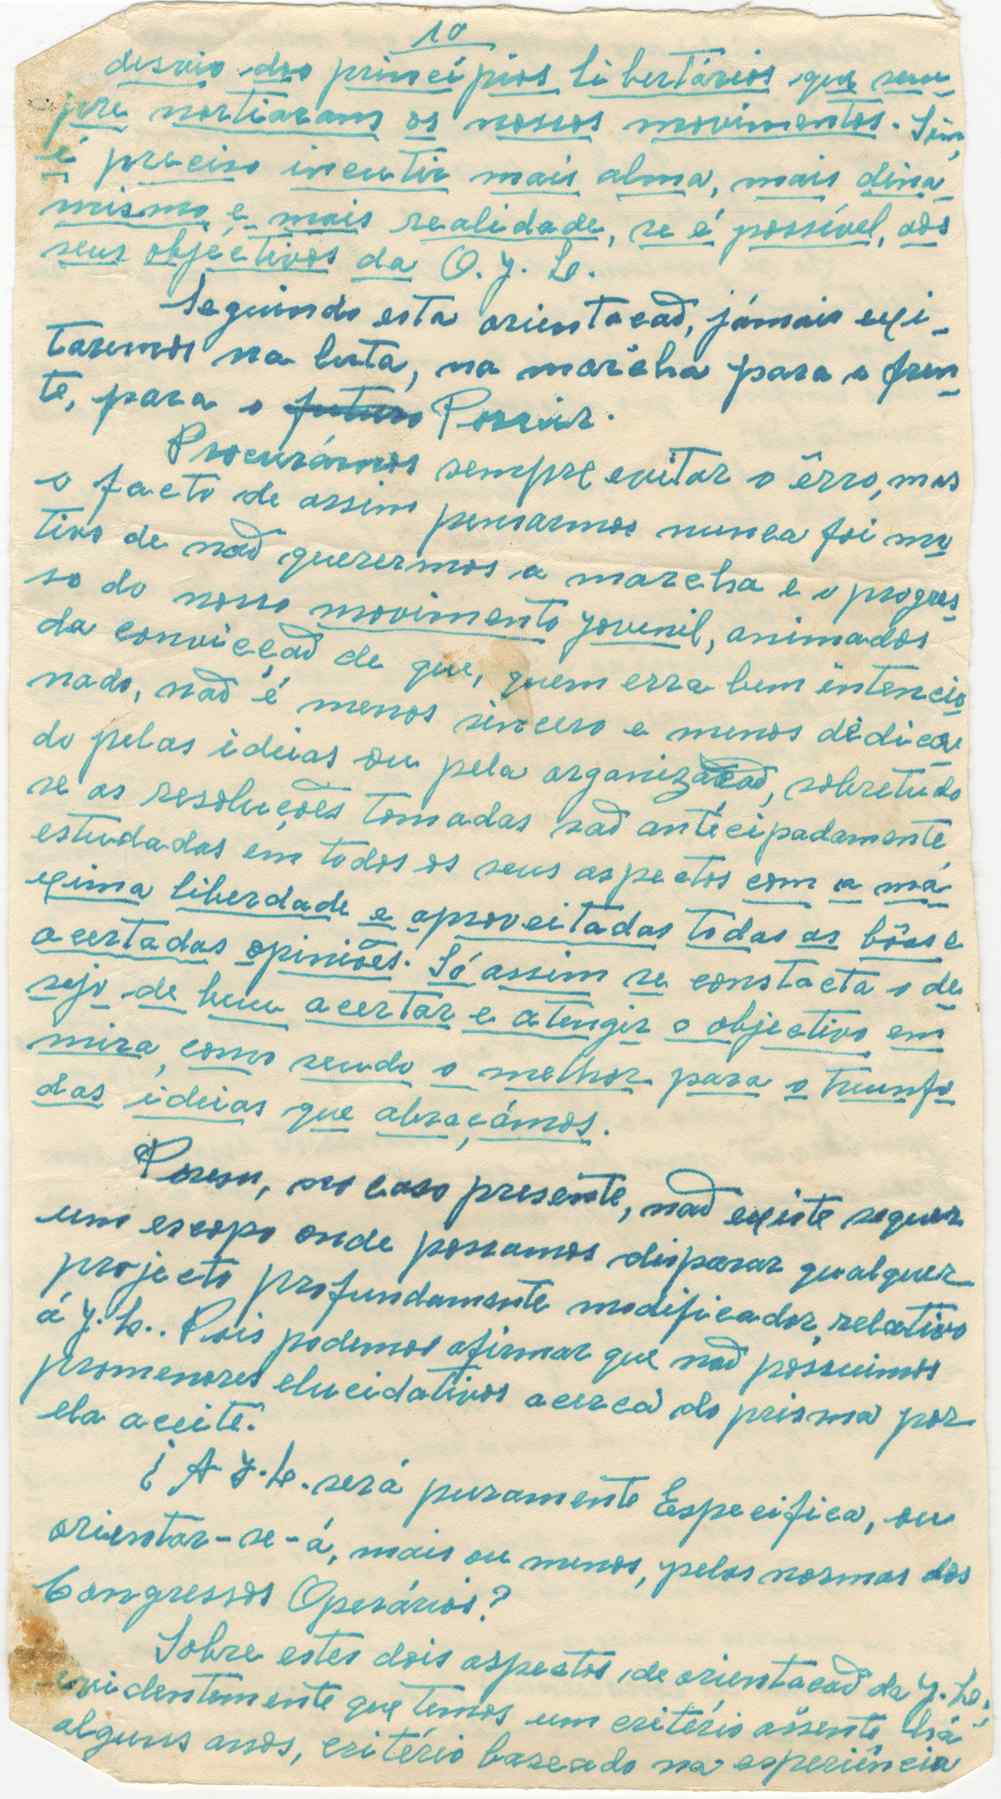 10
desvio dos princípios libertários que sem-
pre nortiaram os nossos movimentos. Sim,
é preciso incutir mais alma, mais dina-
mismo e mais realidade, se é possível, aos
seus objéctivos da O. J. L.
Seguindo esta orientacaõ, jámais exi-
taremos na luta, na marcha para a fren-
te, para o futuro Porvir.
Procurámos sempre evitar o êrro, mas
o facto de assim pensarmos nunca foi mo
tivo de naõ querermos a marcha e o progres
so do nosso movimento juvenil, animados
da convicçaõ de que, quem erra bem intencio
nado, naõ é menos sincero e menos dedica
do pelas ideias ou pela organizacaõ, sobretudo
se as resoluções tomadas saõ antecipadamente
estudadas em todos os seus aspectos com a má
xima liberdade e aproveitadas todas as bôas e
acertadas opiniões. Só assim se constacta o de
sejo de bem acertar e atengir o objectivo em
mira, como sendo o melhor para o triunfo
das ideias que abraçámos.
Porem, no caso presente, naõ existe sequer
um escopo onde possamos disparar qualquer
projecto profundamente modificador, relativo
á J. L.. Pois podemos afirmar que naõ possuimos
promenores elucidativos acerca do prisma por
ela aceite.
¿ A J. L. será puramente Especifica, ou
orientar-se-á, mais ou menos, pelas normas dos
Congressos Operários?
Sobre estes dois aspectos de orientacaõ da J. L.,
evidentemente que temos um critério assente há
alguns anos, critério baseado na esperiência